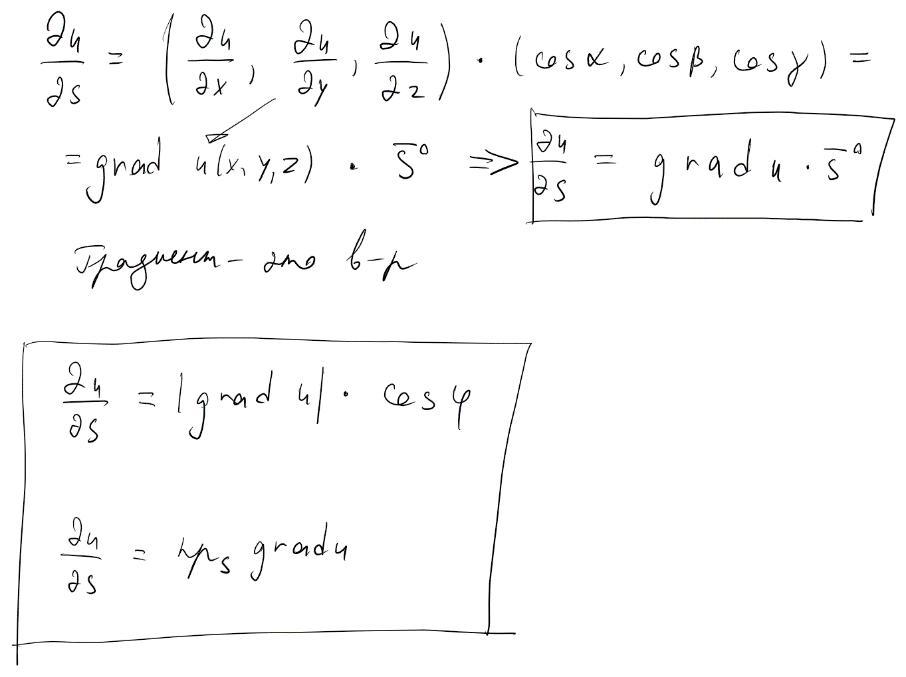 ∂u/∂s = (∂u/∂x, ∂u/∂y, ∂u/∂z) · (cosα, cosβ, cosγ) =
= grad u(x, y, z) · s̄° ⇒ ∂u/∂s = grad u · s̄°
Градиент – это в-р
∂u/∂s = |grad u| · cos φ
∂u/∂s = пр_s grad u